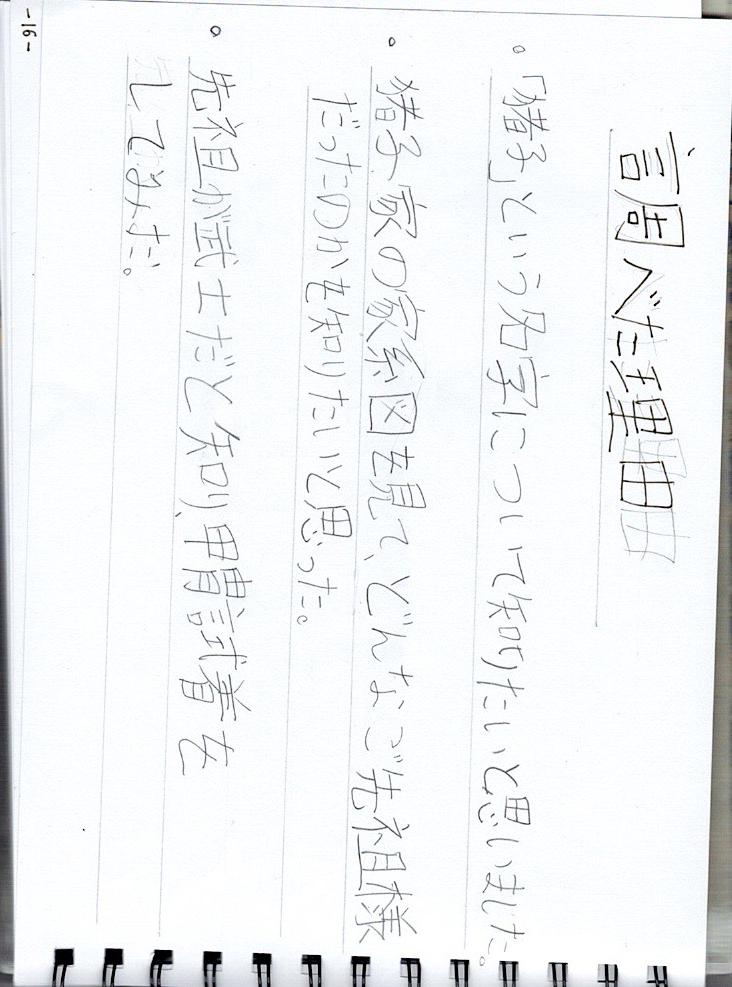 調べた理由
・「猪子」という名字について知りたいと思いました。
・猪子家の家系図を見て、どんなご先祖様
だったのかを知りたいと思った。
・先祖が武士だと知り、甲冑試着を
してみた。
-16-